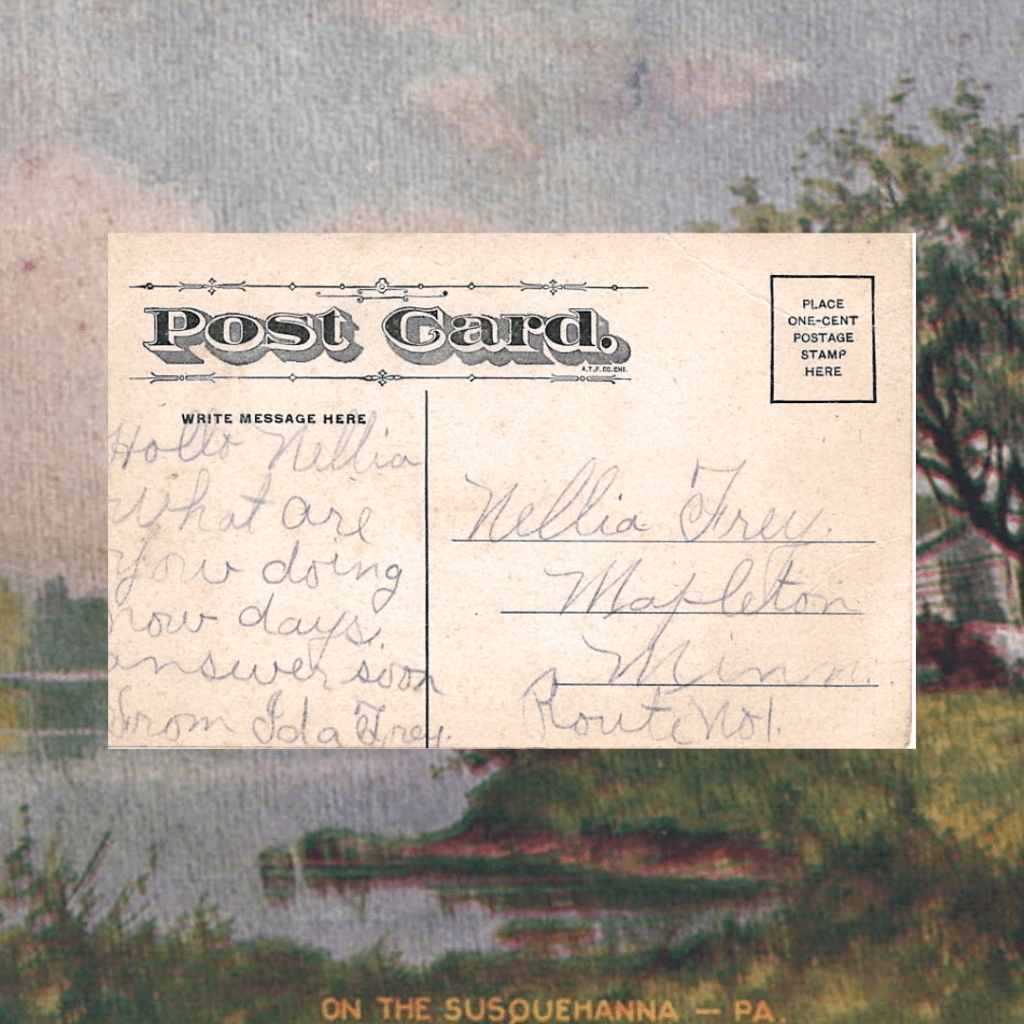 Post Card.
A.T.F. CO. CHI.
PLACE
ONE-CENT
POSTAGE
STAMP
HERE
WRITE MESSAGE HERE
Hollo Nellia
What are
you doing
now days.
answer soon
from Ida Frey.
Nellia Frey.
Mapleton
Minn.
Route No 1.
ON THE SUSQUEHANNA — PA.